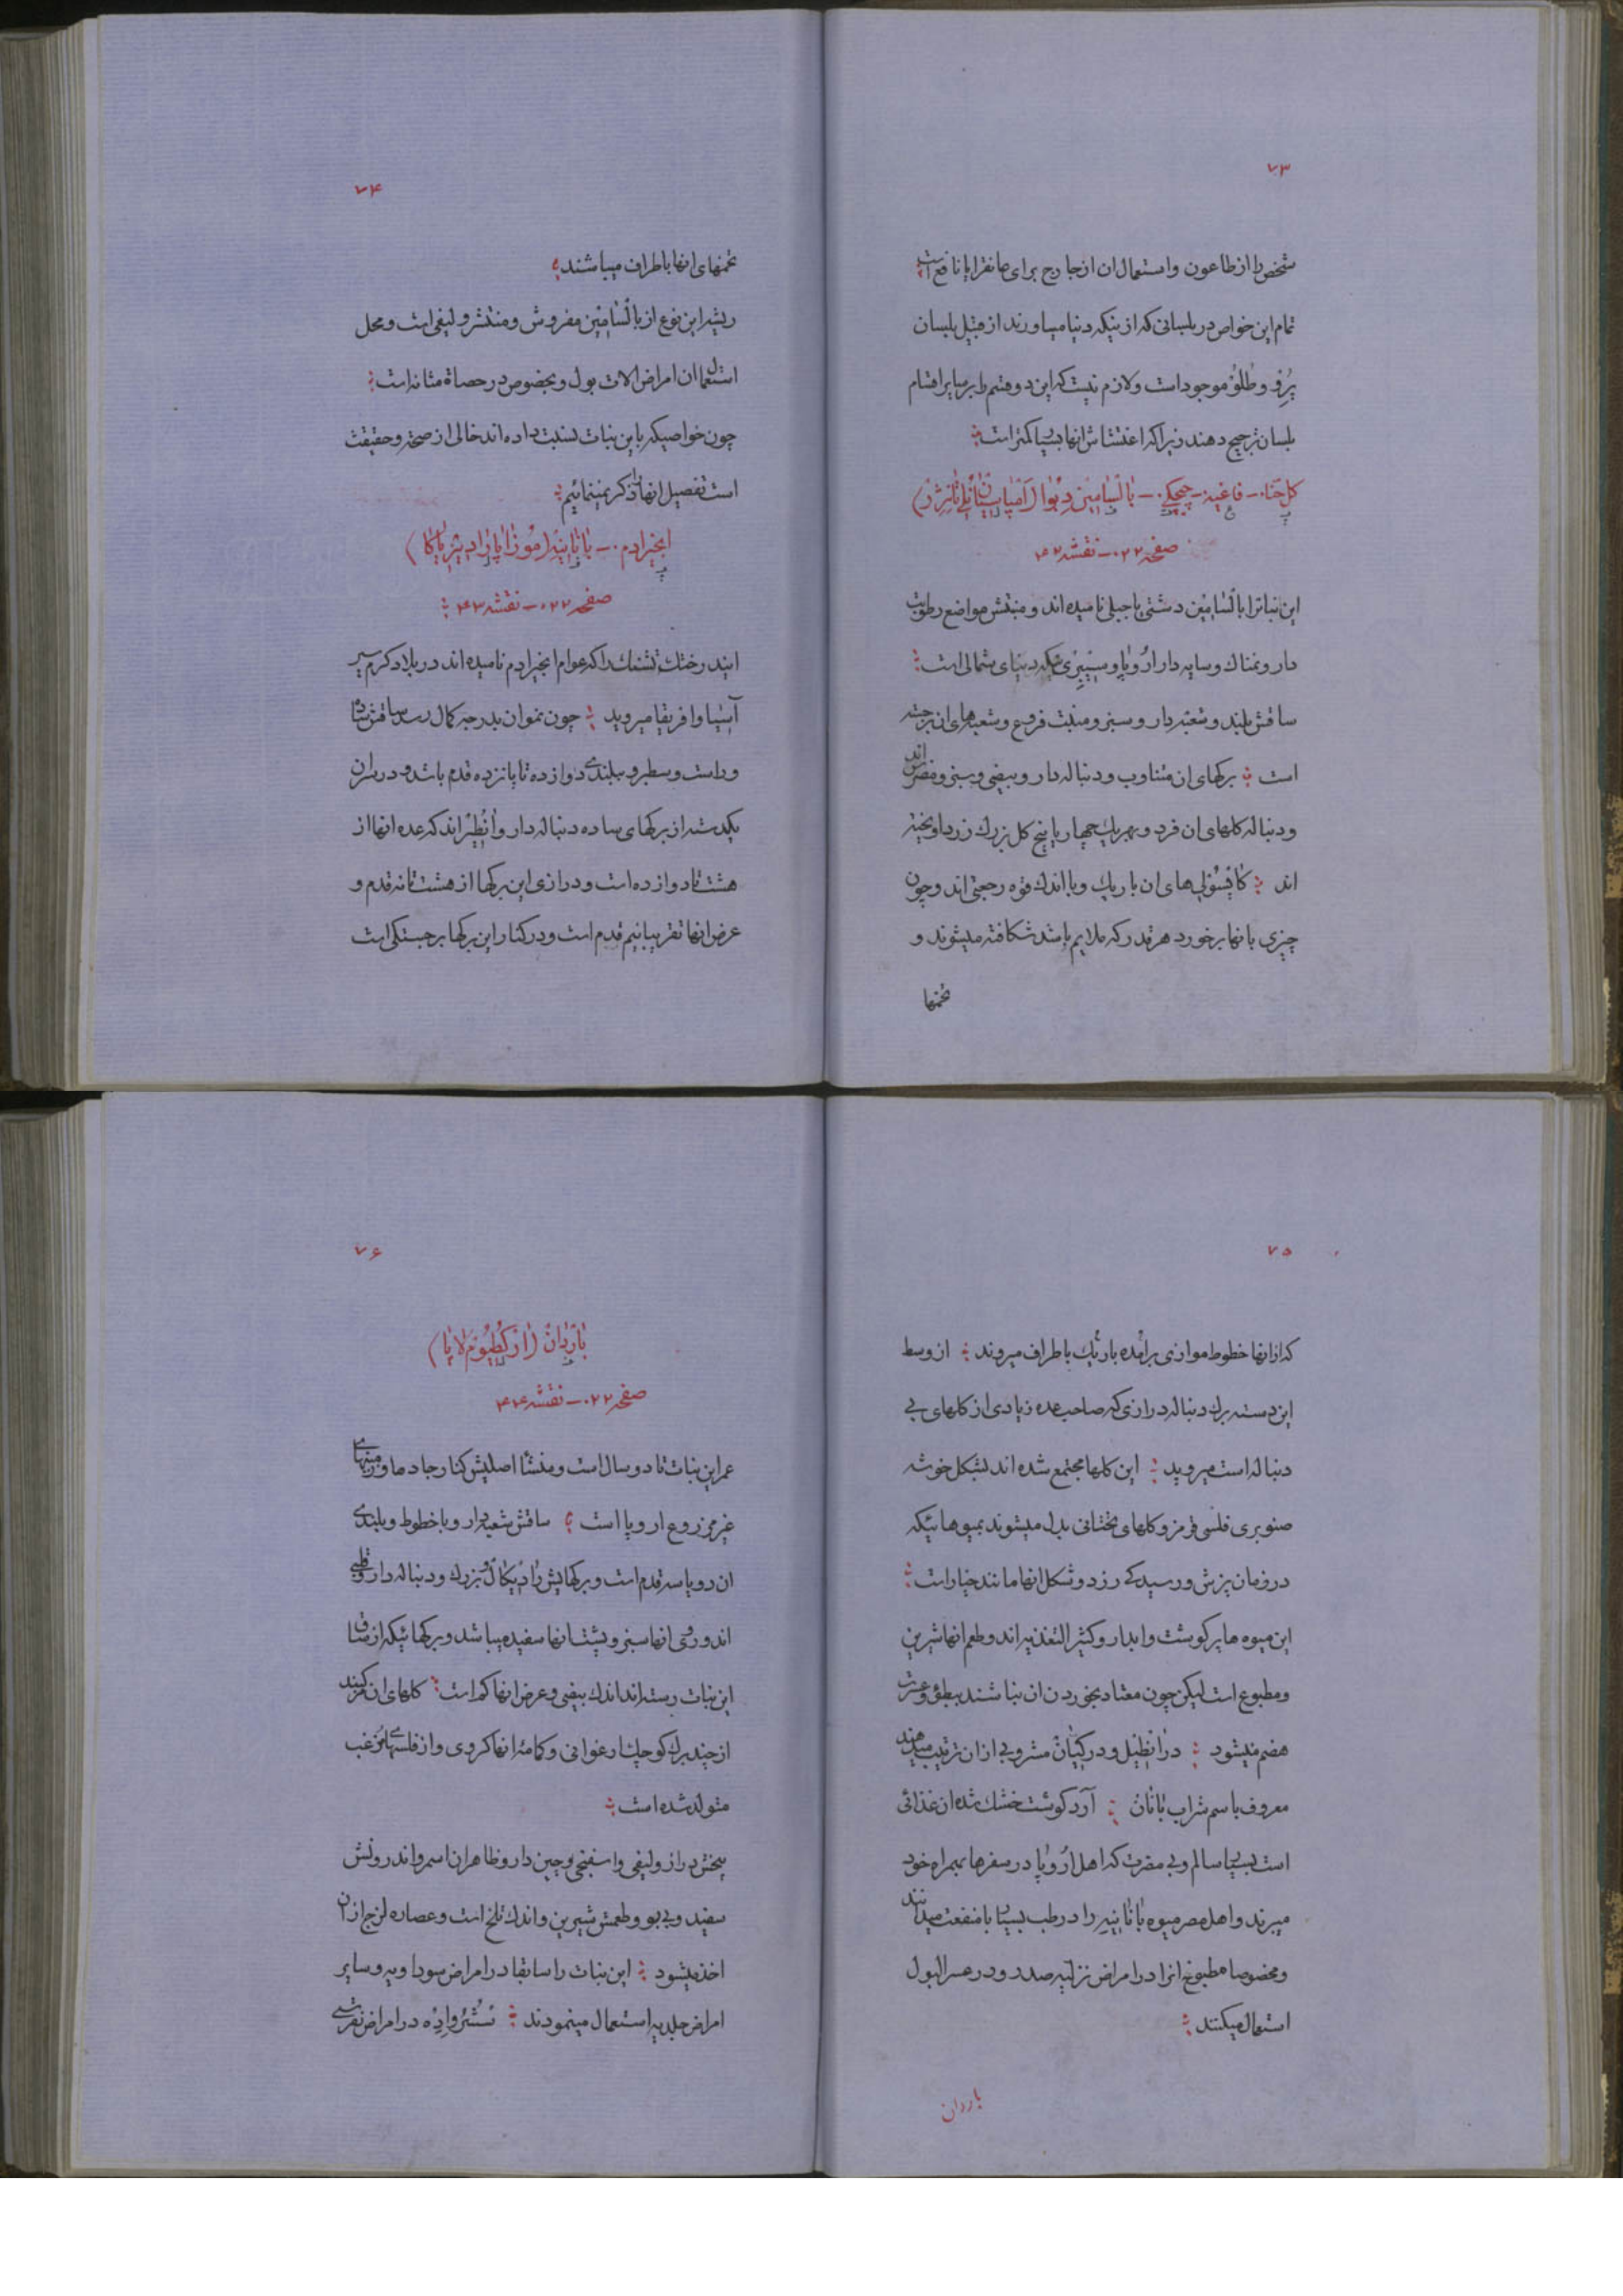 ۷۳
شخص را از طاعون و استعمال ان از خارج برای جانقرایا نافع است
تمام این خواص در بلسانی که از ینکه دنیا میاورند از قبیل بلسان
پرو و طلو موجود است و لازم نیست که این دو قسم را بر سایر اقسام
بلسان ترجیح دهند زیرا که اغتشاش انها بسیار کمتر است
کل حنا - فاغیه - - بالسامین دبوا
صفحه ۰۲۲ - نقشه ۴۲
این نباترا بالسامین دشتی یا جبلی نامیده اند و منبتش مواضع رطوبت
دار و نمناک و سایه دار اروپا و سیبری و ینکه دنیای شمالی است
ساقش بلند و شعبه دار و سبز و منبت فروع و شعبه های ان برجسته
است برکهای ان متناوب و دنباله دار و بیضی و سبز و مضرس اند
و دنباله کلهای ان فرد و بهر یک چهار یا پنج کل بزرک زرد اویخته
اند کاپسولی های ان باریک و با اندک قوه رجعتی اند و چون
چیزی بانها برخورد هر قدر که ملایم باشد شکافته میشوند و
تخمها
۷۴
تخمهای انها باطراف میپاشند
ریشه این نوع از بالسامین مفروش و منتشر و لیفی است و محل
استعمال ان امراض الات بول و بخصوص در حصاة مثانه است
چون خواصیکه باین نبات نسبت داده اند خالی از صحة و حقیقت
است تفصیل انها را ذکر نمینمائیم
انجیر ادم - بانانیه (موزا پارادیزیاکا)
صفحه ۰۲۲ - نقشه ۴۳
ایندرخت قشنک را که عوام انجیر ادم نامیده اند در بلاد کرم سیر
آسیا و افریقا میروید چون نمو ان بدرجه کمال رسد ساقش ساده
و راست و سطبر و ببلندی دوازده تا پانزده قدم باشد و در سر ان
یکدسته از برکهای ساده دنباله دار و اند که عده انها از
هشت تا دوازده است و درازی این برکها از هشت تا نه قدم و
عرض انها تقریبا نیم قدم است و در کنار این برکها برجستکی است
۷۵
که از انها خطوط موازی برآمده باریک باطراف میروند از وسط
این دسته برک دنباله درازی که صاحب عده زیادی از کلهای بی
دنباله است میروید این کلها مجتمع شده اند بشکل خوشه
صنوبری فلسی قرمز و کلهای تحتانی بدل میشوند بمیوه هائیکه
در زمان پزش و رسیدکی زرد و شکل انها مانند خیار است
این میوه ها پر کوشت و ابدار و کثیر التغذیه اند و طعم انها شیرین
و مطبوع است لیکن چون معتاد بخوردن ان نباشند ببطؤ و عسرت
هضم میشود در انطیل و در کیان مشروبی از ان ترتیب میدهند
معروف باسم شراب بانان آرد کوشت خشک شده ان غذائی
است بسیار سالم و بی مضرت که اهل اروپا در سفرها بهمراه خود
میبرند و اهل مصر میوه بانانیه را در طب بسیار با منفعت میدانند
و مخصوصا مطبوخ انرا در امراض نزلتیه صدر و در عسر البول
استعمال میکنند
باردان
۷۶
باردان (ارکطیوم لاپا)
صفحه ۰۲۲ - نقشه ۴۴
عمر این نبات تا دو سال است و منشأ اصلیش کنار جاده ها و زمینهای
غیر مزروع اروپا است ساقش شعبه دار و با خطوط و بلندی
ان دو یا سه قدم است و برکهایش رادیکال و بزرک و دنباله دار و قلبی
اند و روی انها سبز و پشت انها سفید میباشد و برکهائیکه از ساق
این نبات رسته اند اندک بیضی و عرض انها کم است کلهای ان مرکبند
از چند برک کوچک ارغوانی و کمامه انها کروی و از فلسهای مزغب
متولد شده است
بیخش دراز و لیفی و اسفنجی و چین دار و ظاهر ان اسمر و اندرونش
سفید و بی بو و طعمش شیرین و اندک تلخ است و عصاره لزج از ان
اخذ میشود این نبات را سابقا در امراض سوداویه و سایر
امراض جلدیه استعمال مینمودند در امراض نقرسی